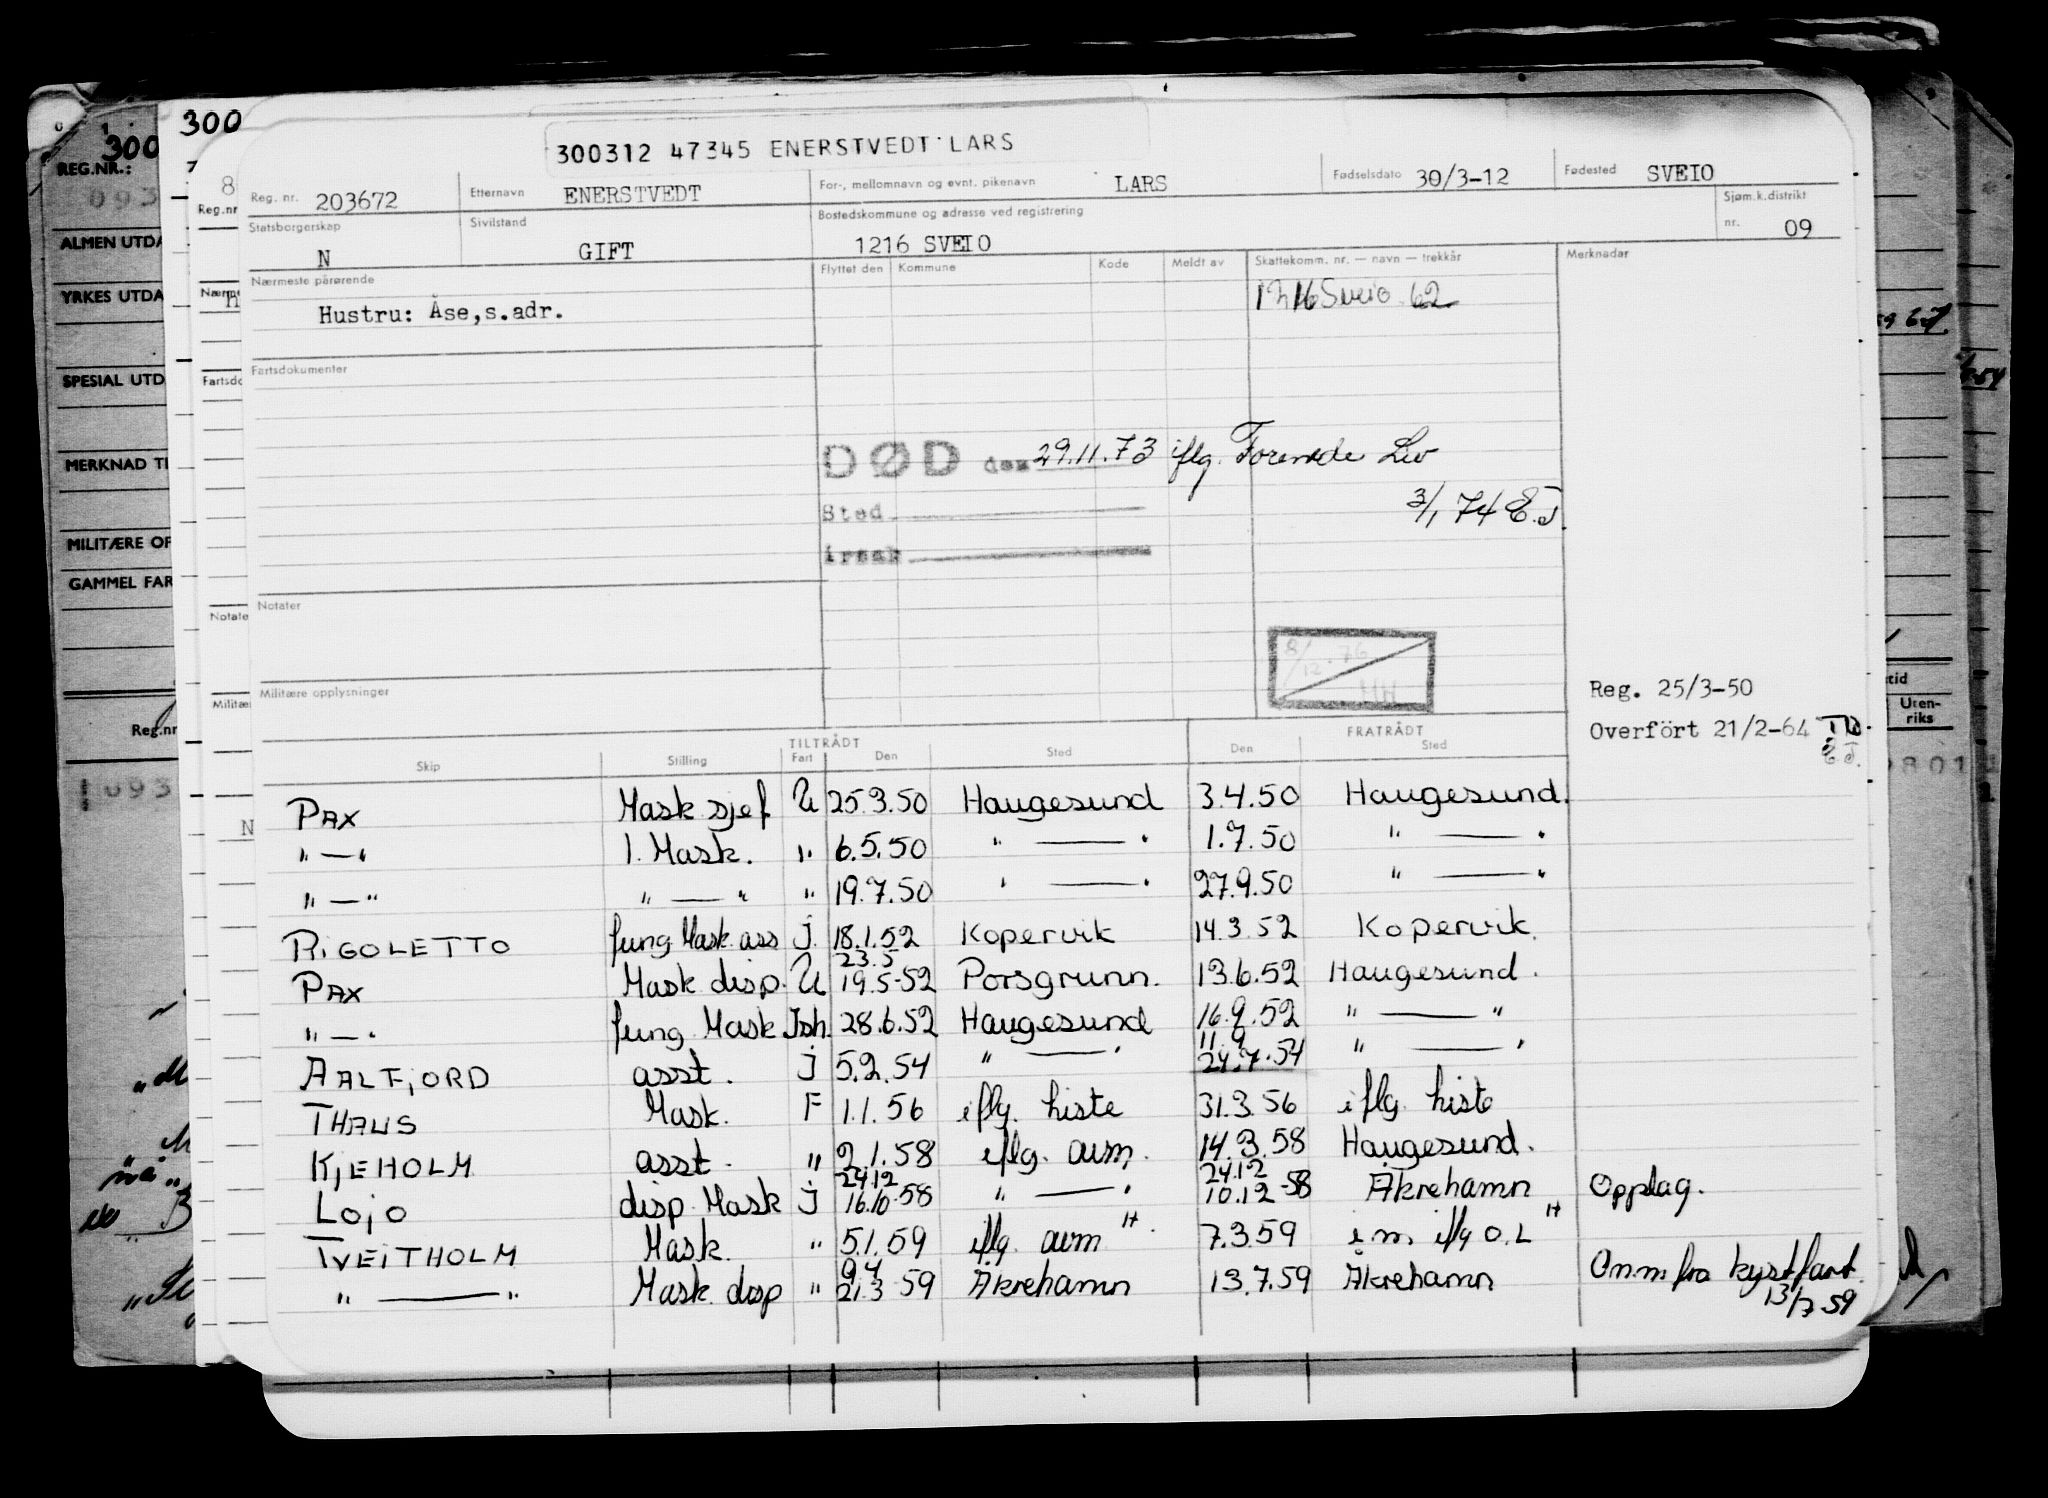 300
300
300312 47345 ENERSTVEDT LARS
REG.NR.:
093
8
Reg.nr
Reg. nr. 203672 Etternavn ENERSTVEDT For-, mellomnavn og evnt. pikenavn LARS Fødselsdato 30/3-12 Fødested SVEIO
ALMEN UTDA
Statsborgerskap N Sivilstand GIFT Bostedskommune og adresse ved registrering 1216 SVEIO Sjøm.k.distrikt nr. 09
YRKES UTDA
Nærmeste pårørende Flyttet den Kommune Kode Meldt av Skattekomm. nr. — navn — trekkår Merknader
Hustru: Åse,s.adr. 1216 Sveio 62
SPESIAL UTD
Fartsdo
Fartsdokumenter
MERKNAD TI
DØD den 29.11.73 iflg. Forenede Liv
3/1 74 E.J.
Sted
årsak
MILITÆRE OP
GAMMEL FAR
Notate
Notater
8/12.76 MH
Militæ
Militære opplysninger
Reg. 25/3-50
Overført 21/2-64
E.J.
Reg.nr
tid
Uten-
riks
093
0801
TILTRÅDT FRATRÅDT
Skip Stilling Fart Den Sted Den Sted
PAX Mask sjef U 25.3.50 Haugesund 3.4.50 Haugesund.
" — " 1. Mask. " 6.5.50 " — " 1.7.50 " — "
" — " " — " " 19.7.50 " — " 27.9.50 " — "
RIGOLETTO fung. Mask ass j. 18.1.52 Kopervik 14.3.52 Kopervik.
23.5
PAX Mask disp. U 19.5-52 Porsgrunn. 13.6.52 Haugesund.
" — " fung Mask Ish. 28.6.52 Haugesund 16.9.52 " — "
11.9
AALFJORD asst. j 5.2.54 " — " 24.7.54 " — "
THAUS Mask. F 1.1.56 iflg. liste 31.3.56 iflg. liste
KJEHOLM asst. " 2.1.58 iflg. avm. 14.3.58 Haugesund.
24.12 24.12
LOJO disp Mask j 16.10-58 " — " 10.12-58 Åkrehamn Opplag.
TVEITHOLM Mask. " 5.1.59 iflg. avm H. 7.3.59 i.m. iflg O.L H
9.4
" — " Mask. disp " 21.3 59 Åkrehamn 13.7.59 Åkrehamn Omm fra kystfart
13/7 59